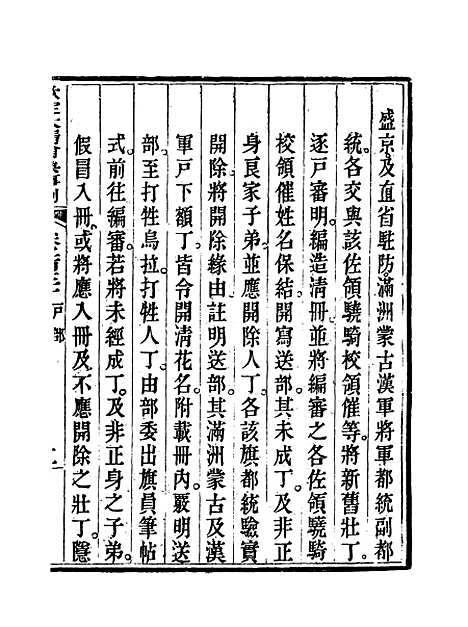 盛京及直省駐防滿洲蒙古漢軍將軍都統副都
統各交與該佐領驍騎校領催等將新舊壯丁
逐戶審明編造清冊並將編審之各佐領驍騎
校領催姓名保結開寫送部其未成丁及非正
身良家子弟並應開除人丁各該旗都統驗實
開除將開除緣由註明送部其滿洲蒙古及漢
軍戶下額丁皆令開清花名附載冊內嚴明送
部至打牲烏拉打牲人丁由部委出旗員筆帖
式前往編審若將未經成丁及非正身之子弟
假冒入冊或將應入冊及不應開除之壯丁隱
戶部